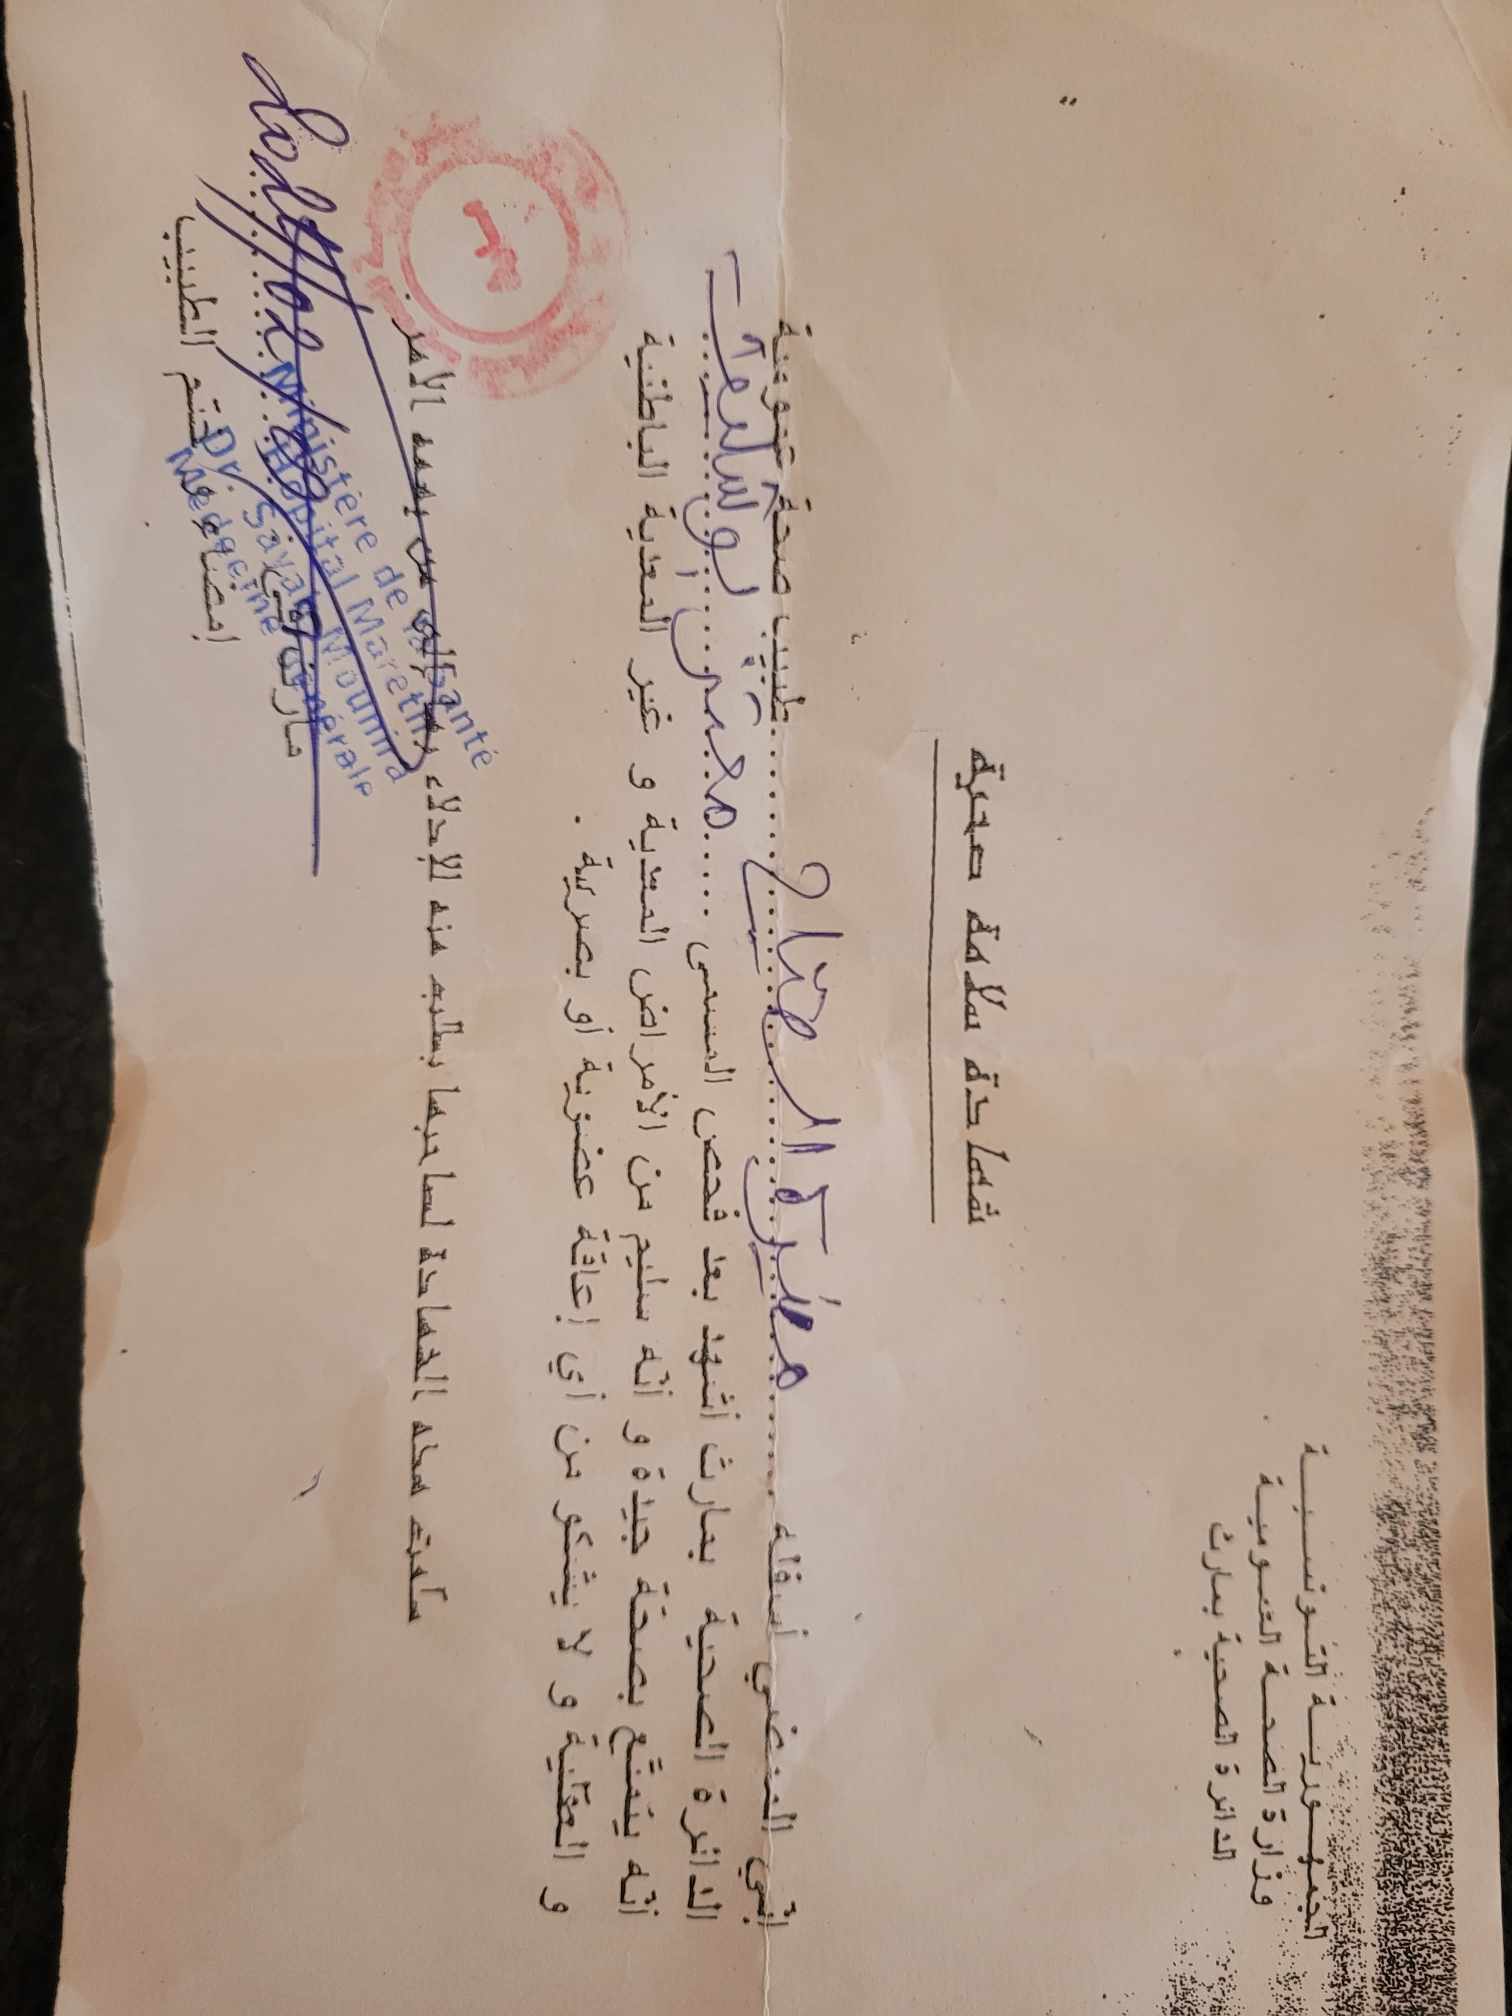 الجمهوريـة التـونسيـة
وزارة الصحـة العمـوميـة
الدائرة الصحية بمارث
شهادة سلامة صحية
إنّي الممضي أسفله منيرة الرصياح طبيب صحة عمومية
الدائرة الصحية بمارث أشهد بعد فحص المسمى معتز بوشكيوة
أنّه يتمتّع بصحّة جيّدة و أنّه سليم من الأمراض المعدية و غير المعدية الباطنية
و العقليّة و لا يشكو من أي إعاقة عضوية أو بصرية .
سلمت هذه الشهادة لصاحبها بطلب منه للإدلاء بها لدى من يهمه الأمر .
مارث في
إمضاء و ختم الطبيب
Ministère de la Santé
Hôpital Mareth
Dr. Sayah Mounira
Médecine Générale